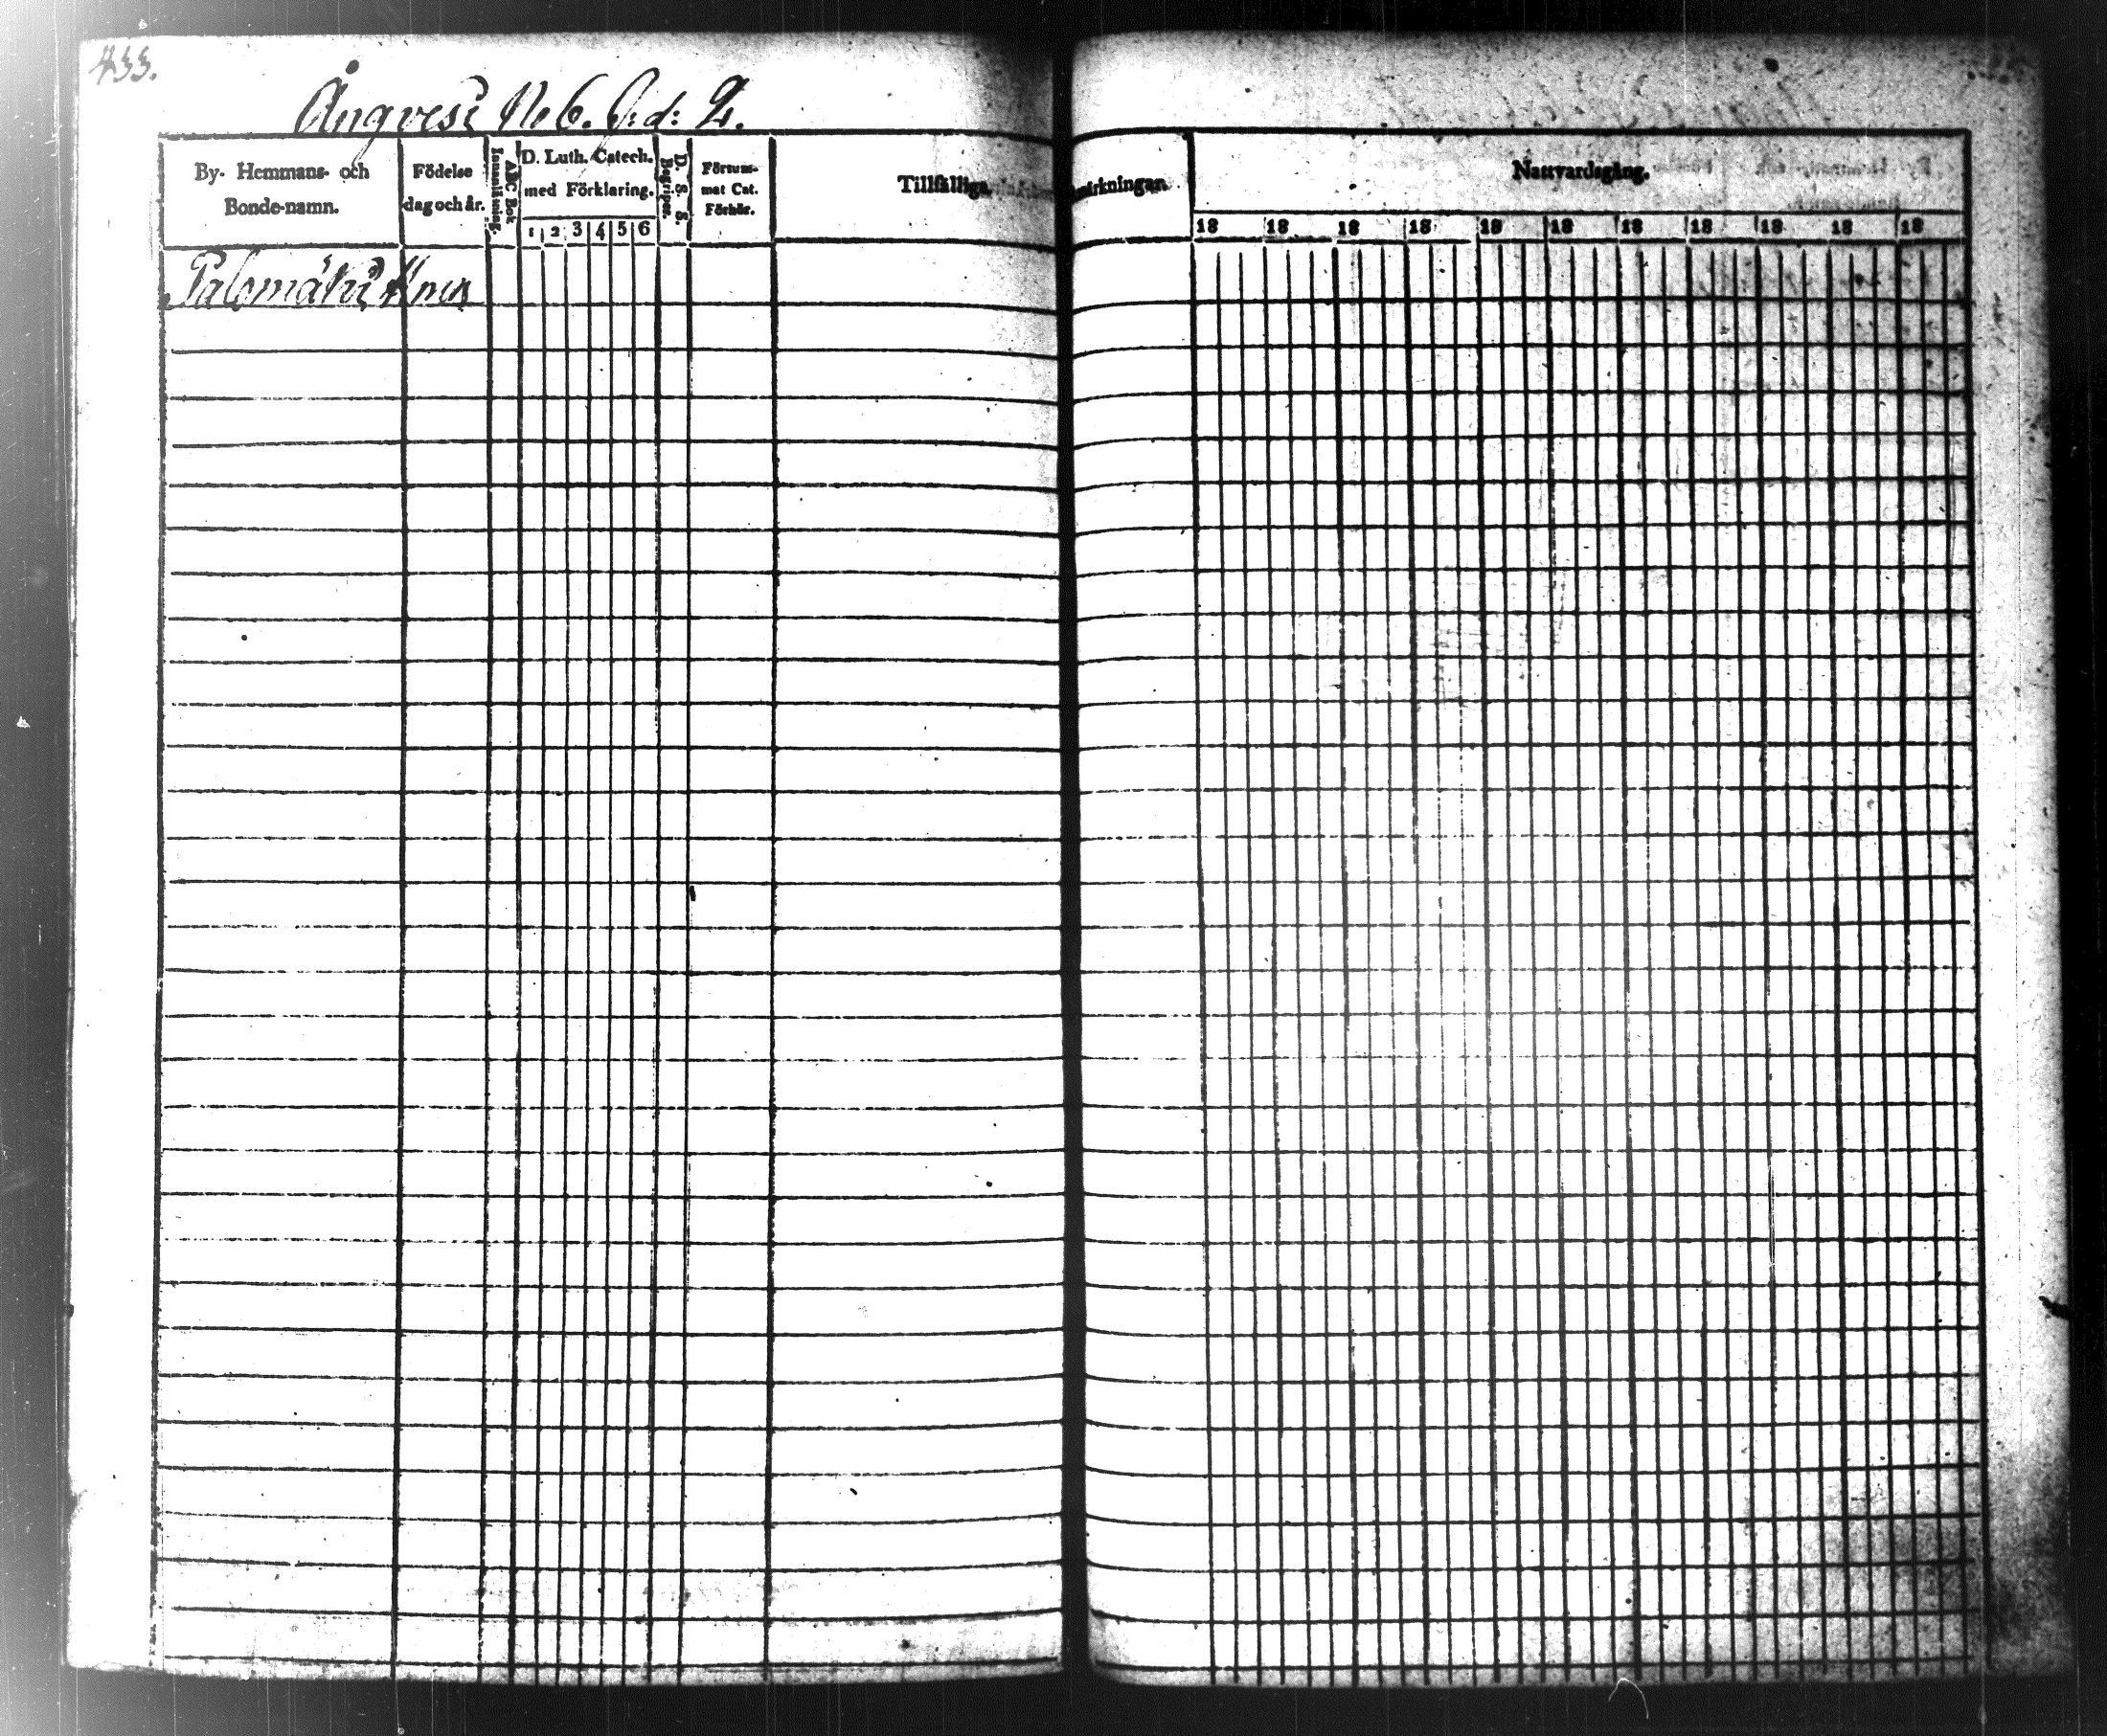 433.
Ångvesi No 6. J:d: 2.
By- Hemmans- och Bonde-namn.
Födelse dag och år.
ABC Bok Innanläsning.
D. Luth. Catech. med Förklaring.
1 2 3 4 5 6
D. S. S. Begriper.
Försummat Cat. Förhör.
Tillfälliga Anmärkningar.
Nattvardsgång.
18 18 18 18 18 18 18 18 18 18 18
Palomäki